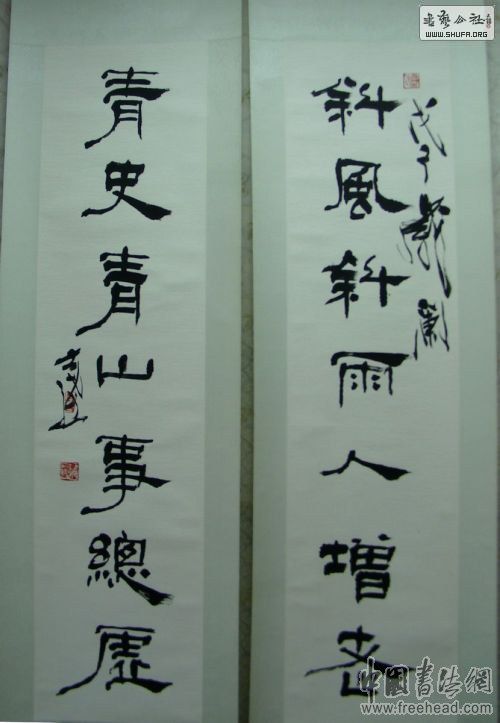 斜風斜雨人增老
戊子歲蘭
青史青山事總虛
書藝公社
WWW.SHUFA.ORG
中國書法網
www.freehead.com